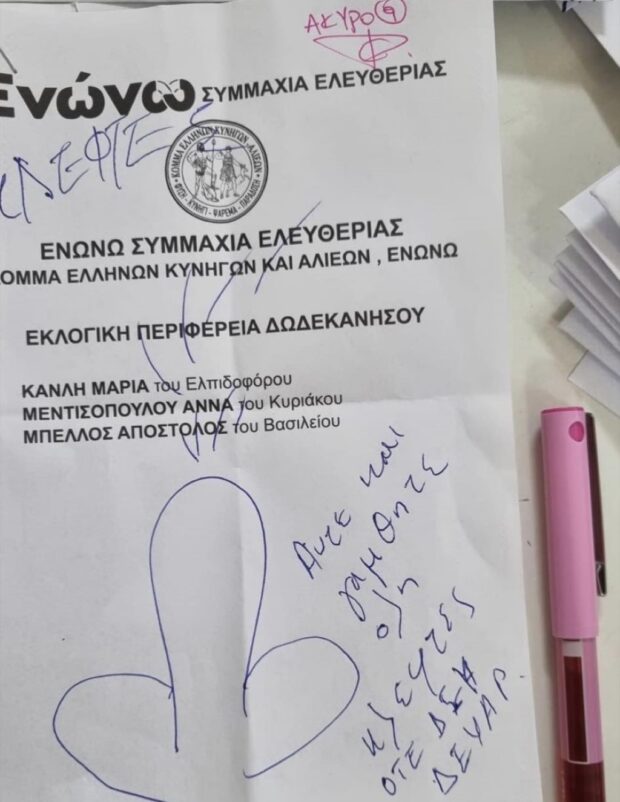 ΑΚΥΡΟ 9
Ενώνω ΣΥΜΜΑΧΙΑ ΕΛΕΥΘΕΡΙΑΣ
ΚΛΕΦΤΕΣ
ΚΟΜΜΑ ΕΛΛΗΝΩΝ ΚΥΝΗΓΩΝ ΑΛΙΕΩΝ
ΦΥΣΗ - ΚΥΝΗΓΙ - ΨΑΡΕΜΑ - ΠΑΡΑΔΟΣΗ
ΕΝΩΝΩ ΣΥΜΜΑΧΙΑ ΕΛΕΥΘΕΡΙΑΣ
ΚΟΜΜΑ ΕΛΛΗΝΩΝ ΚΥΝΗΓΩΝ ΚΑΙ ΑΛΙΕΩΝ , ΕΝΩΝΩ
ΕΚΛΟΓΙΚΗ ΠΕΡΙΦΕΡΕΙΑ ΔΩΔΕΚΑΝΗΣΟΥ
ΚΑΝΛΗ ΜΑΡΙΑ του Ελπιδοφόρου
ΜΕΝΤΙΣΟΠΟΥΛΟΥ ΑΝΝΑ του Κυριάκου
ΜΠΕΛΛΟΣ ΑΠΟΣΤΟΛΟΣ του Βασιλείου
Αντε και
γαμηθητε
ολη
κλεφτες
ΟΤΕ ΔΕΗ
ΔΕΥΑΡ